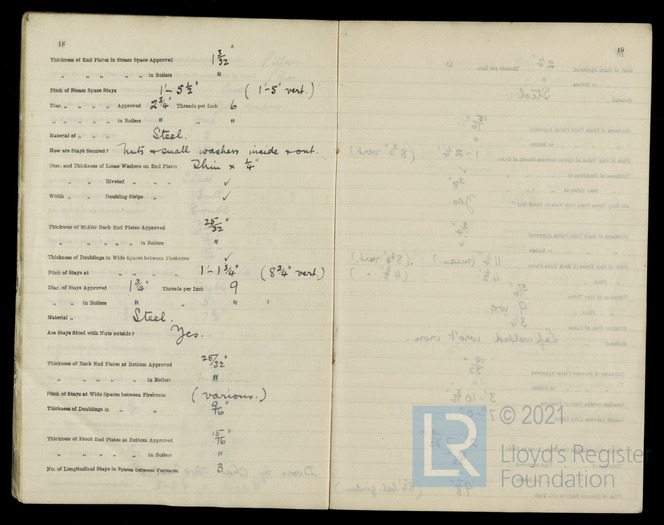 18
Thickness of End Plates in Steam Space Approved 1 3/32"
„ „ „ „ „ in Boilers "
Pitch of Steam Space Stays 1'-5½" (1'-5" vert.)
Diar. „ „ „ „ Approved 2¾" Threads per Inch 6
„ „ „ „ in Boilers " „ "
Material of „ „ Steel.
How are Stays Secured? Nuts & small washers inside & out.
Diar. and Thickness of Loose Washers on End Plates × ¼"
„ „ Riveted „ „ „ ✓
Width „ „ Doubling Strips „ ✓
Thickness of Middle Back End Plates Approved 25/32"
„ „ „ „ „ in Boilers "
Thickness of Doublings in Wide Spaces between Fireboxes ✓
Pitch of Stays at „ „ „ „ 1'-1¾" (8¾" vert.)
Diar. of Stays Approved 1¾" Threads per Inch 9
„ „ in Boilers " „ "
Material „ Steel.
Are Stays fitted with Nuts outside? Yes.
Thickness of Back End Plates at Bottom Approved 25/32"
„ „ „ „ „ in Boilers "
Pitch of Stays at Wide Spaces between Fireboxes (various.)
Thickness of Doublings in „ „ 9/16"
Thickness of Front End Plates at Bottom Approved 15/16"
„ „ „ „ „ in Boilers "
No. of Longitudinal Stays in Spaces between Furnaces 3
19
LR
© 2021
Lloyd's Register
Foundation